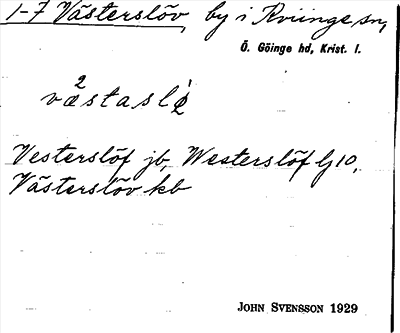 1-7 Västerslöv, by i Kviinge sn,
Ö. Göinge hd, Krist. l.
Vesterslöf jb, Westerslöf Gj10,
Västerslöv kb
JOHN SVENSSON 1929